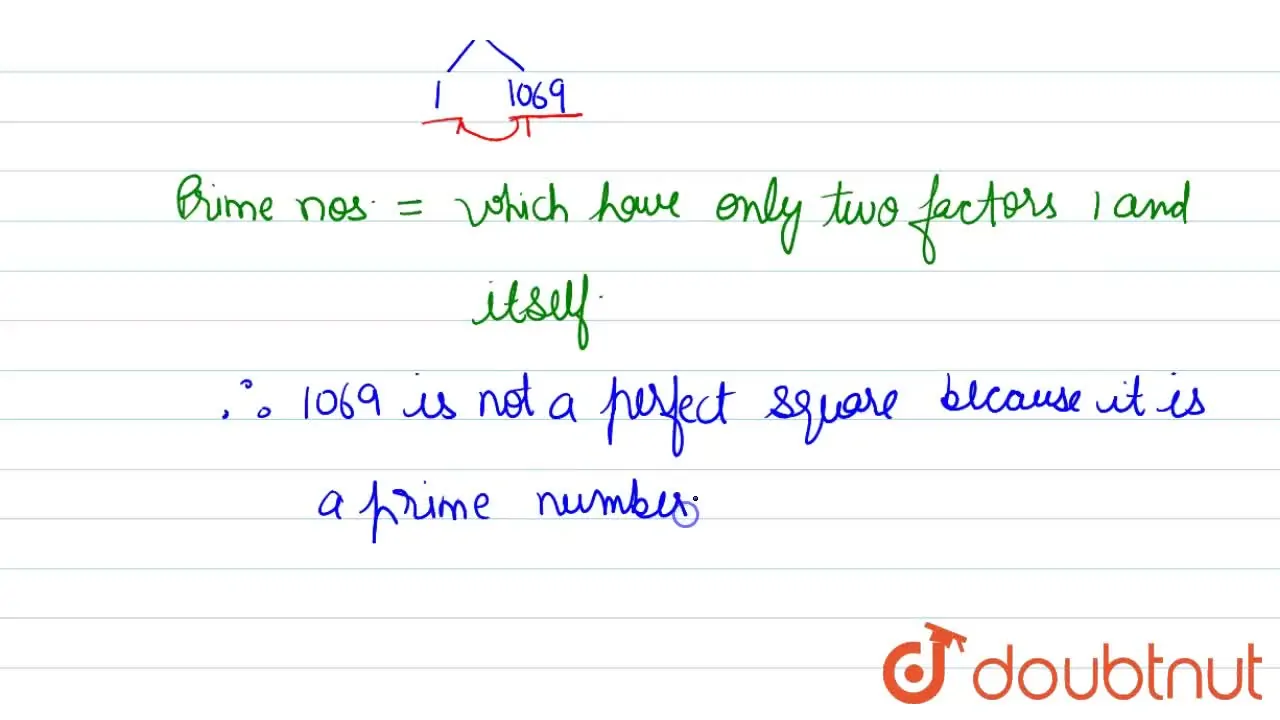 1 1069
Prime nos. = which have only two factors 1 and
itself.
∴ 1069 is not a perfect square because it is
a prime number.
doubtnut